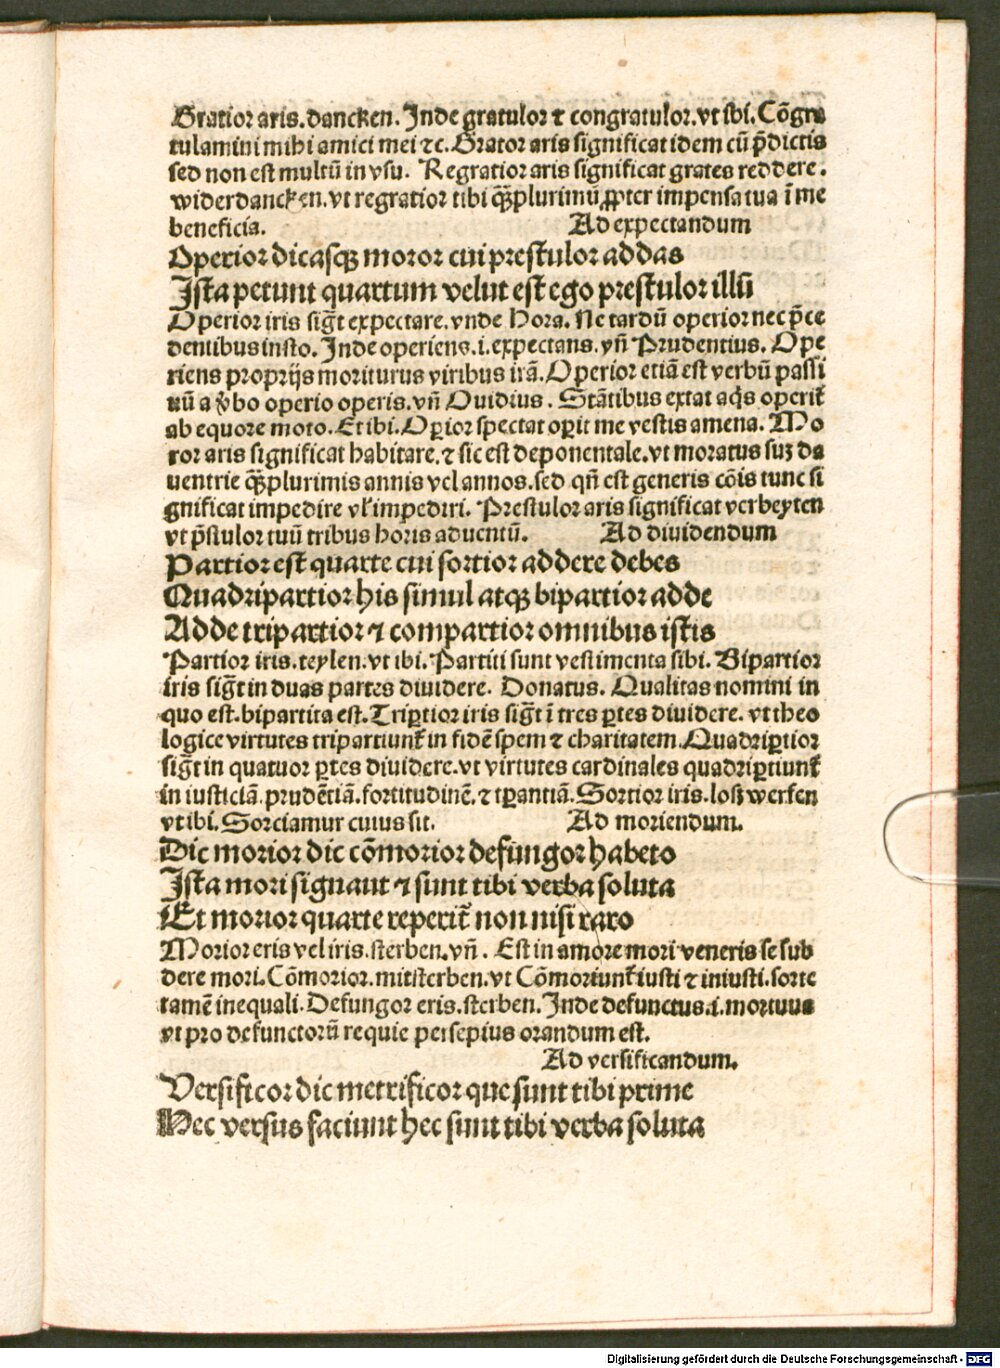 Gratior aris.dancken.Inde gratulor ⁊ congratulor.vt ibi.Cōgra
tulamini mihi amici mei ⁊c.Grator aris significat idem cū p̄dictis
sed non est multū in vsu. Regratior aris significat grates reddere.
widerdancken.vt regratior tibi qꝫplurimū ꝓpter impensa tua ī me
beneficia. Ad expectandum
Operior dicasqꝫ moror cui prestulor addas
Ista petunt quartum velut est ego prestulor illū
Operior iris sigt̄ expectare.vnde Hora. Ne tardū operior nec p̄ce
dentibus insto. Inde operiens.i.expectans.vn̄ Prudentius. Ope
riens proprijs moriturus viribus irā.Operior etiā est verbū passi
uū a v̄bo operio operis.vn̄ Ouidius. Stātibus extat aq̄s operit̄
ab equore moto. Et ibi.Oꝑior spectat oꝑit me vestis amena. Mo
ror aris significat habitare.⁊ sic est deponentale.vt moratus suꝫ da
uentrie qꝫplurimis annis vel annos.sed qn̄ est generis cōis tunc si
gnificat impedire vl̄ impediri. Prestulor aris significat verbeyten
vt p̄stulor tuū tribus horis aduentū. Ad diuidendum
Partior est quarte cui sortior addere debes
Quadripartior his simul atqꝫ bipartior adde
Adde tripartior ⁊ compartior omnibus istis
Partior iris.teylen.vt ibi.Partiti sunt vestimenta sibi. Bipartior
iris sigt̄ in duas partes diuidere. Donatus. Qualitas nomini in
quo est.bipartita est.Triꝑtior iris sigt̄ ī tres ꝑtes diuidere. vt theo
logice virtutes tripartiunt̄ in fidē spem ⁊ charitatem.Quadriꝑtior
sigt̄ in quatuor ꝑtes diuidere.vt virtutes cardinales quadriꝑtiunt̄
in iusticiā.prudētiā.fortitudinē.⁊ tꝑantiā.Sortior iris.losꝫ werfen
vt ibi.Sorciamur cuius sit. Ad moriendum.
Dic morior dic cōmorior defungor habeto
Ista mori signant ⁊ sunt tibi verba soluta
Et morior quarte reperit̄ non nisi raro
Morior eris vel iris.sterben.vn̄. Est in amore mori veneris se sub
dere mori.Cōmorior.mitsterben.vt Cōmoriunt̄ iusti ⁊ iniusti.sorte
tamē inequali.Defungor eris.sterben.Inde defunctus.i.mortuus
vt pro defunctorū requie persepius orandum est.
Ad versificandum.
Versificor dic metrificor que sunt tibi prime
Hec versus faciunt hec sunt tibi verba soluta
Digitalisierung gefördert durch die Deutsche Forschungsgemeinschaft - DFG